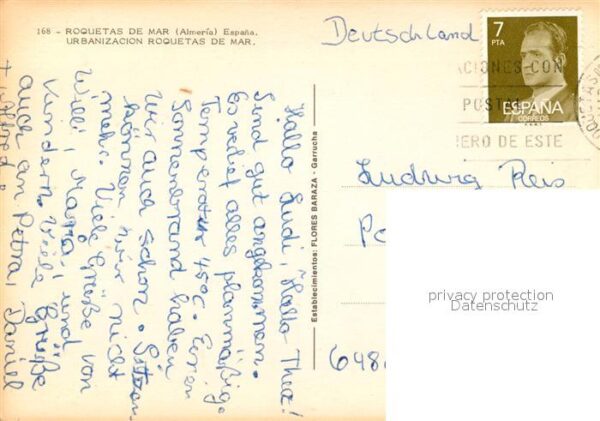 168 - ROQUETAS DE MAR (Almería) España.
URBANIZACION ROQUETAS DE MAR.
Hallo Ludi, Hallo Thea!
Sind gut angekommen.
Es verlief alles planmäßig.
Temperatur 45°C. Einen
Sonnenbrand haben
wir auch schon. Sitzen
können wir nicht
mehr. Viele Grüße von
Willi, Maria, und
Kindern. Viele Grüße
auch an Petra, Daniel
+ Alfred.
Establecimientos: FLORES BARAZA - Garrucha
Deutschland
7
PTA
ESPAÑA
CORREOS
ACIONES CON
POSTAL
ERO DE ESTE
Ludwig Reis
648
privacy protection
Datenschutz